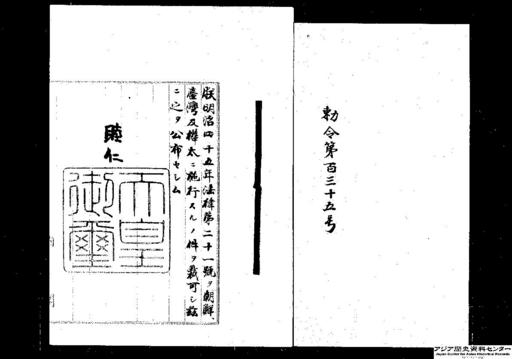 勅令第百三十五号
朕明治四十五年法律第二十一號ヲ朝鮮
臺灣及樺太ニ施行スルノ件ヲ裁可シ茲
ニ之ヲ公布セシム
睦仁
天皇
御璽
アジア歴史資料センター
Japan Center for Asian Historical Records